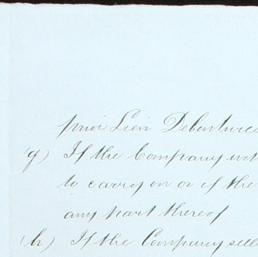 prior Lien Debentures
(g) If the Company
to carry on or if the
any part thereof
(h) If the Company sell